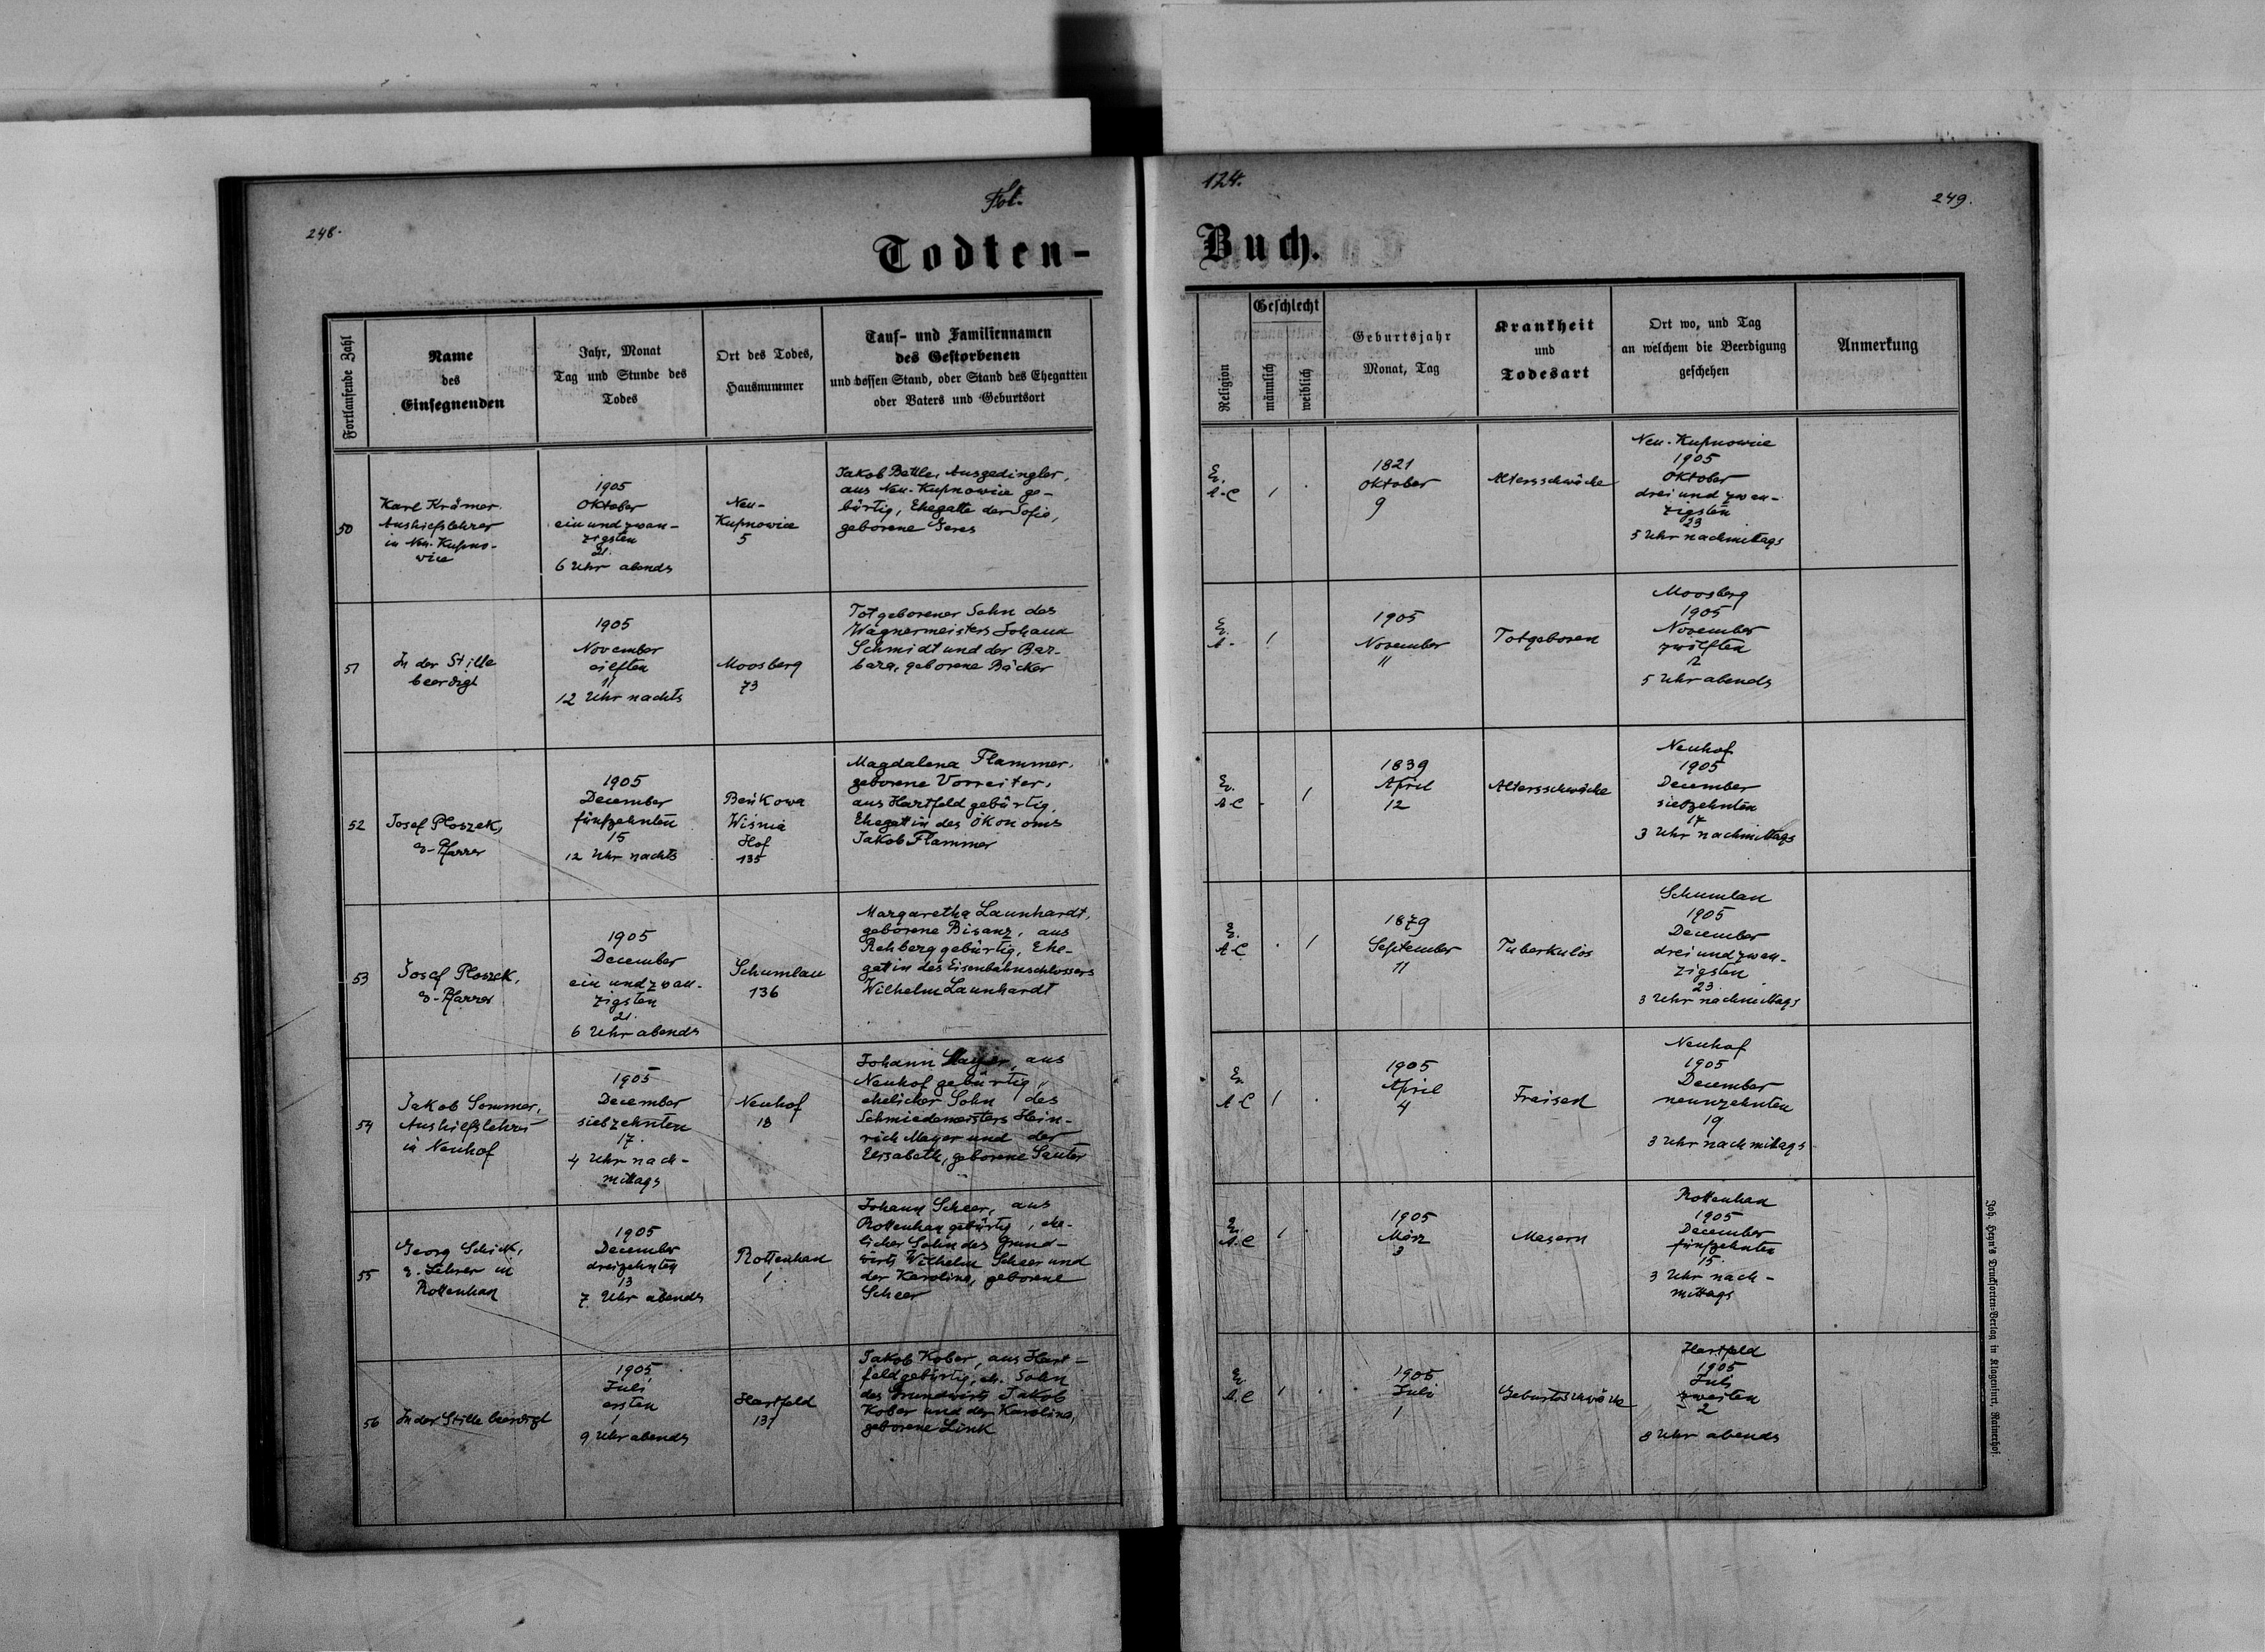 Fol.
124.
248.
249.
Todten-
Buch.
Fortlaufende Zahl
Name
des
Einsegnenden
Jahr, Monat
Tag und Stunde des
Todes
Ort des Todes,
Hausnummer
Tauf- und Familiennamen
des Gestorbenen
und dessen Stand, oder Stand des Ehegatten
oder Vaters und Geburtsort
Religion
Geschlecht
männlich
weiblich
Geburtsjahr
Monat, Tag
Krankheit
und
Todesart
Ort wo, und Tag
an welchem die Beerdigung
geschehen
Anmerkung
50
Karl Krämer
Aushilfslehrer
in Neu-Kupno-
wice
1905
Oktober
ein und zwan-
zigsten
21.
6 Uhr abends
Neu-
Kupnowice
5
Jakob Bettler, Ausgedingler,
aus Neu-Kupnowice ge-
bürtig, Ehegatte der Sofie,
geborene Geres
Ev.
A-C
1
.
1821
Oktober
9
Altersschwäche
Neu-Kupnowice
1905
Oktober
drei und zwan-
zigsten
23
5 Uhr nachmittags
51
In der Stille
beerdigt
1905
November
eilften
11
12 Uhr nachts
Moosberg
73
Totgeborener Sohn des
Wagnermeisters Johann
Schmidt und der Bar-
bara, geborene Bäcker
Ev.
A-
1
1905
November
11
Totgeboren
Moosberg
1905
November
zwölften
12
5 Uhr abends
52
Josef Ploszek,
e-Pfarrer
1905
December
fünfzehnten
15
12 Uhr nachts
Beńkowa
Wisnia
Hof
135
Magdalena Flammer,
geborene Vorreiter,
aus Hartfeld gebürtig,
Ehegattin des Ökonoms
Jakob Flammer
Ev.
A-C
.
1
1839
April
12
Altersschwäche
Neuhof
1905
December
siebzehnten
17
3 Uhr nachmittags
53
Josef Ploszek,
e-Pfarrer
1905
December
ein und zwan-
zigsten
21.
6 Uhr abends
Schumlau
136
Margaretha Launhardt,
geborene Bisanz, aus
Rehberg gebürtig, Ehe-
gattin des Eisenbahnschlossers
Wilhelm Launhardt
Ev.
A-C
.
1
1879
September
11
Tuberkulos
Schumlau
1905
December
drei und zwan-
zigsten
23.
3 Uhr nachmittags
54
Jakob Sommer,
Aushilfslehrer
in Neuhof
1905
December
siebzehnten
17.
4 Uhr nach-
mittags
Neuhof
18
Johann Mayer, aus
Neuhof gebürtig,
ehelicher Sohn des
Schmiedemeisters Hein-
rich Mayer und der
Elisabeth, geborene Sauter
Ev.
A C
1
.
1905
April
4
Fraisen
Neuhof
1905
December
neunzehnten
19
3 Uhr nachmittags
55
Georg Schick,
e. Lehrer in
Rottenhan
1905
December
dreizehnten
13
7 Uhr abends
Rottenhan
1
Johann Scheer, aus
Rottenhan gebürtig, ehe-
licher Sohn des Grund-
wirts Wilhelm Scheer und
der Karolina, geborene
Scheer
Ev.
A.C
1
.
1905
März
3
Masern
Rottenhan
1905
December
fünfzehnten
15.
3 Uhr nach-
mittags
56
In der Stille beerdigt
1905
Juli
ersten
1
9 Uhr abends
Hartfeld
131
Jakob Kober, aus Hart-
feld gebürtig, eh. Sohn
des Grundwirts Jakob
Kober und der Karolina,
geborene Link
Ev
A.C
1
.
1905
Juli
1
Geburtsschwäche
Hartfeld
1905
Juli
zweiten
2
8 Uhr abends
Joh. Heyn's Drucksorten-Verlag in Klagenfurt, Rainerhof.